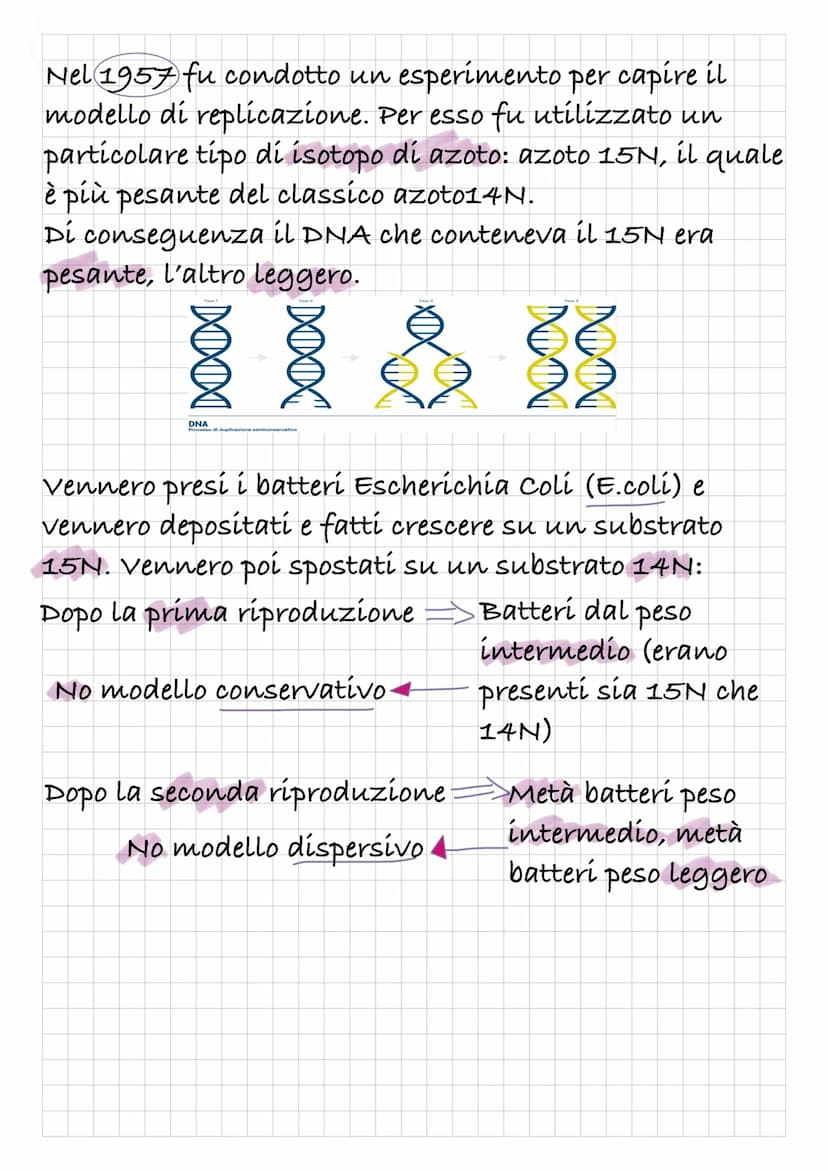 Nel 1957 fu condotto un esperimento per capire il
modello di replicazione. Per esso fu utilizzato un
particolare tipo di isotopo di azoto: azoto 15N, il quale
è più pesante del classico azoto14N.
Di conseguenza il DNA che conteneva il 15N era
pesante, l'altro leggero.
DNA
Processo di duplicazione semiconservativo
Vennero presi i batteri Escherichia Coli (E.coli) e
vennero depositati e fatti crescere su un substrato
15N. Vennero poi spostati su un substrato 14N:
Dopo la prima riproduzione ⇒ Batteri dal peso
intermedio (erano
No modello conservativo ← presenti sia 15N che
14N)
Dopo la seconda riproduzione ⇒ Metà batteri peso
intermedio, metà
No modello dispersivo ←
batteri peso leggero